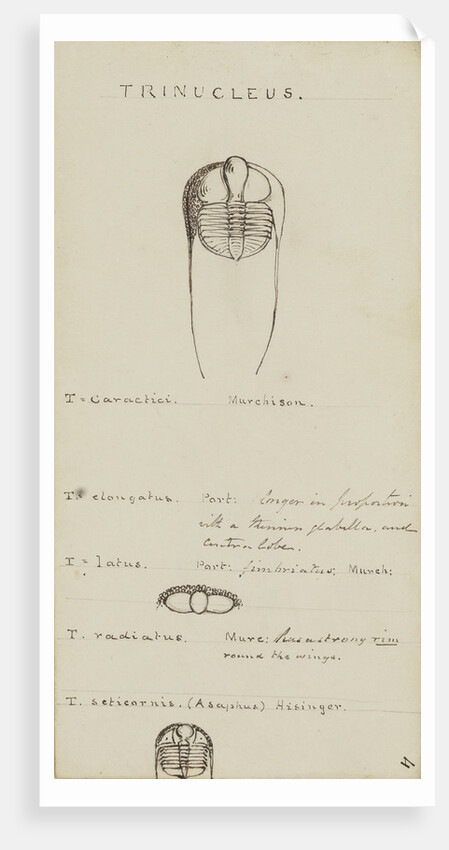 TRINUCLEUS.
T = Caractici. Murchison.
T. elongatus. Port: longer in proportion
with a thinner glabella, and
central lobe.
T = latus. Port: fimbriatus; Murch:
T. radiatus. Murc: has a strong rim
round the wings.
T. seticornis. (Asaphus) Hisinger.
4